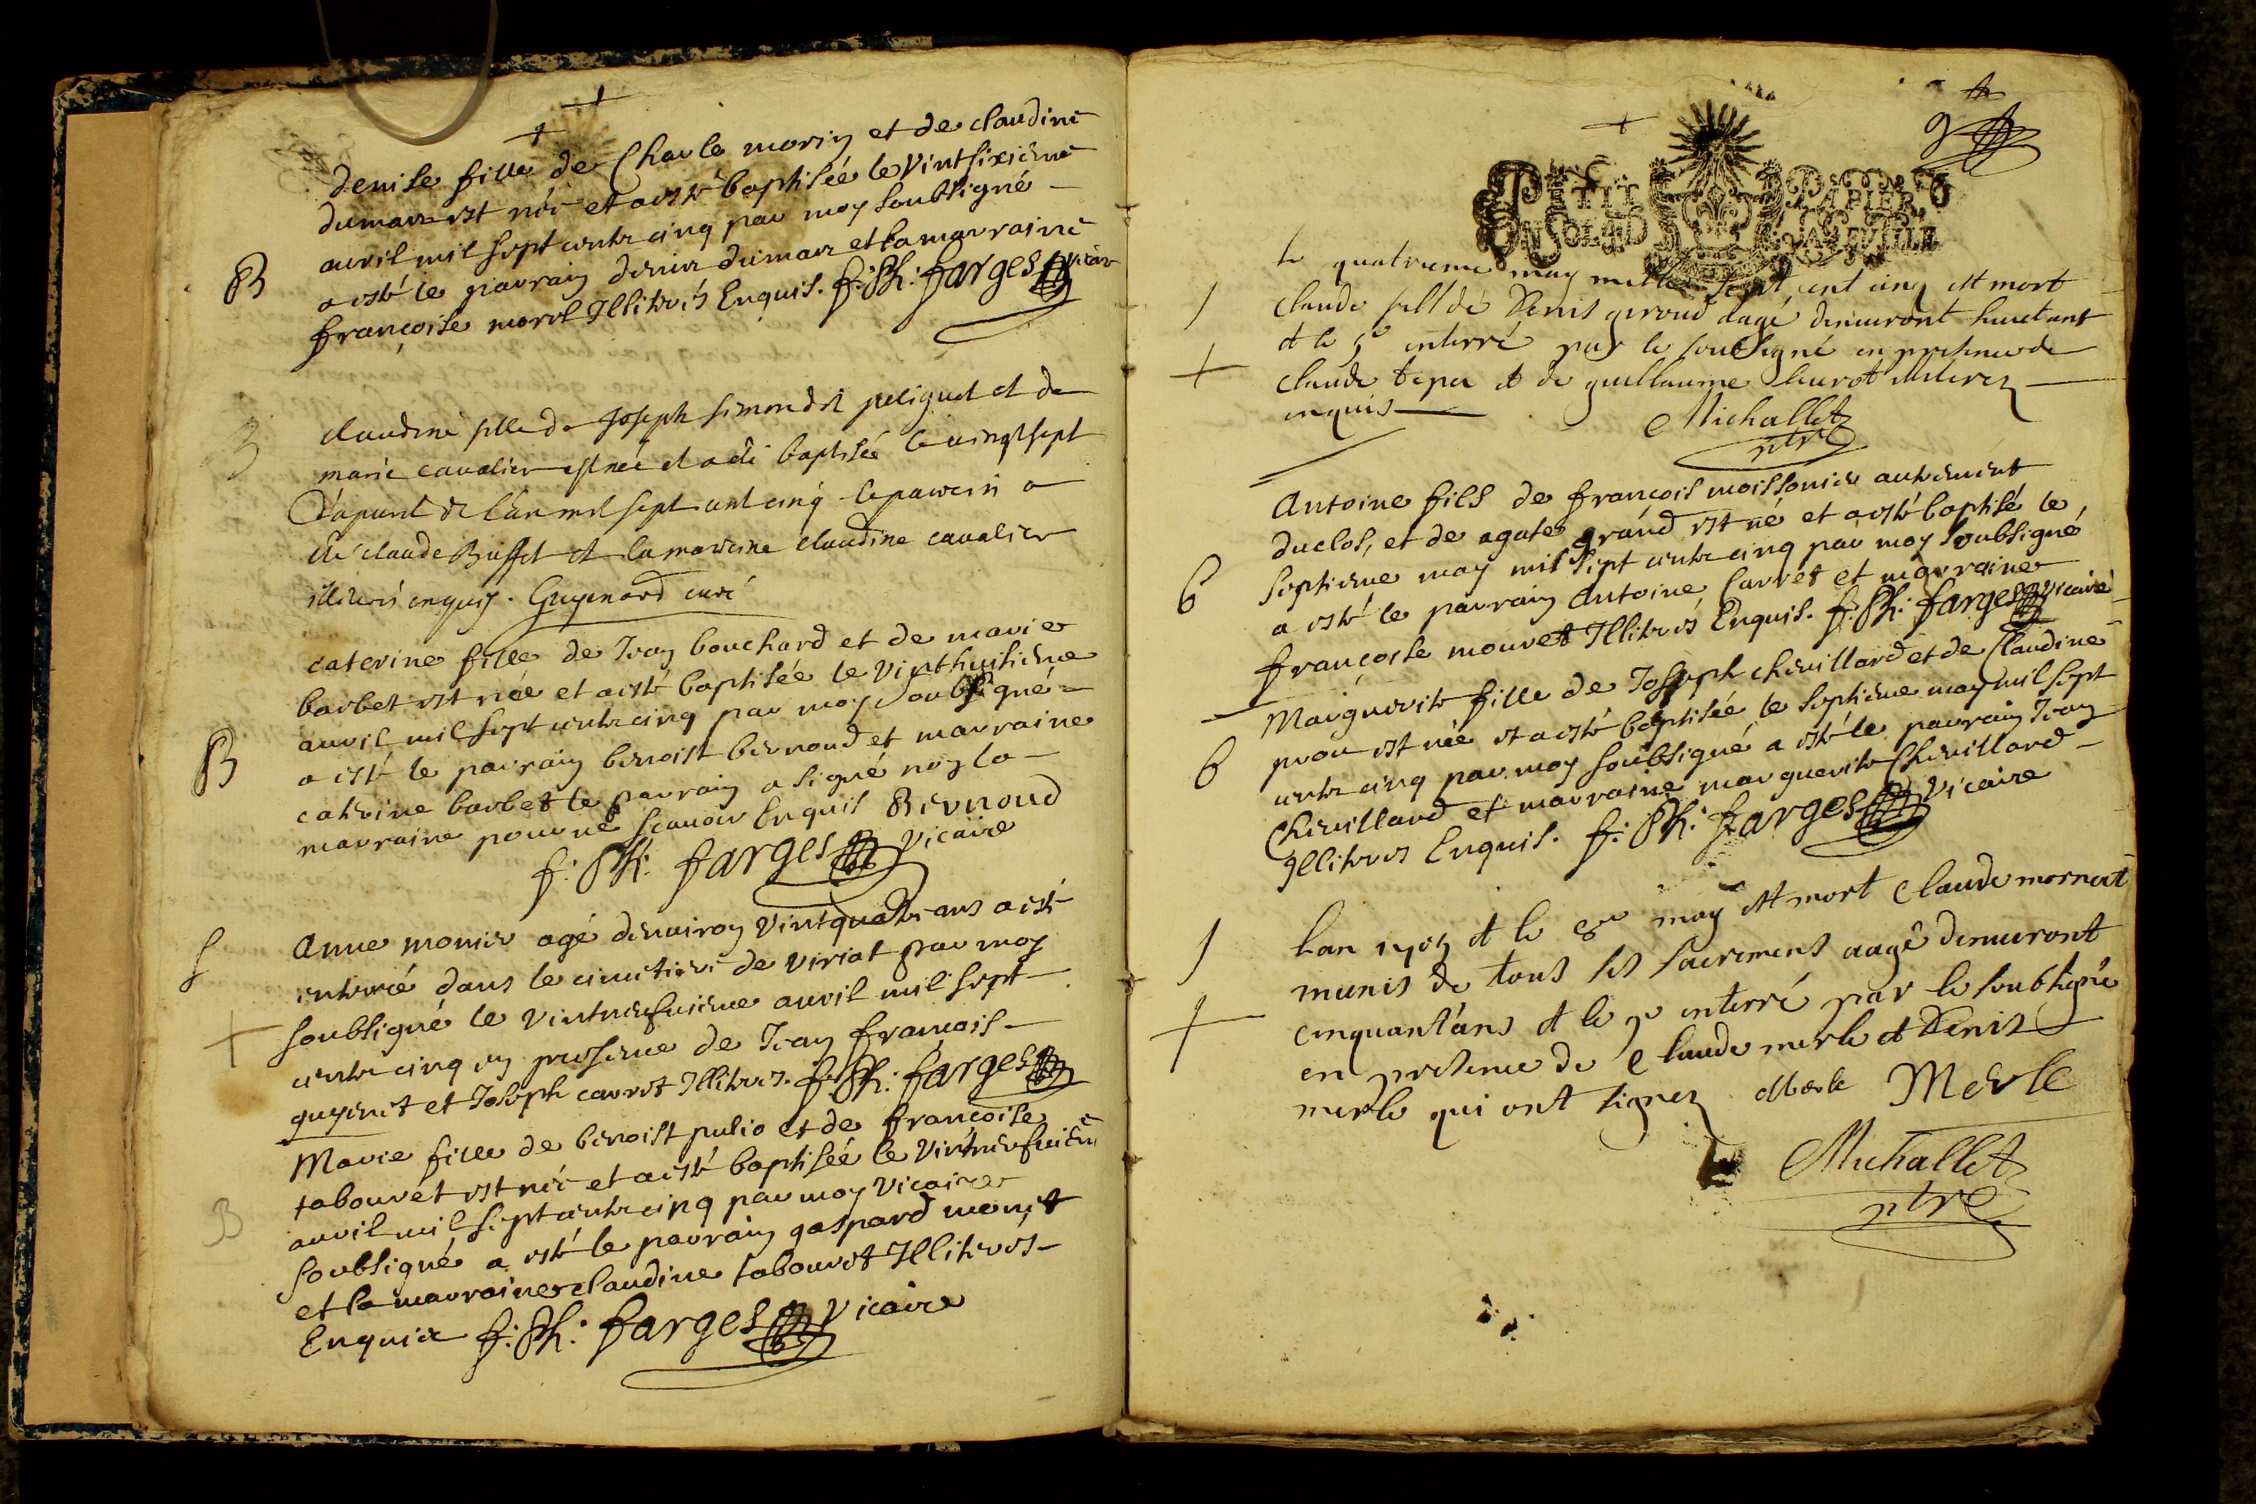 denise fille de Charle morin et de claudine
dumar est née et a esté baptisée le vintsixieme
avril mil sept cents cinq par moy soubsigné
B
a esté le parrain denis dumar et la marraine
françoise morel Illiterés Enquis. f: Ph: farges vicaire
B
claudine fille de Joseph simondet peliguet et de
marie cavalier est née et a été baptisée le vingt sept
d'avril de l'an mil sept cent cinq le parein a
été claude Buffet et la mareine claudine cavalier
illiterés enquis. Guyenard curé
caterine fille de Jean bouchard et de marie
barbet est née et a esté baptisée le vinthuitieme
avril mil sept cents cinq par moy soubsigné
B
a esté le parrain benoist bernoud et marraine
caterine barbet le parrain a signé non la
marraine pour ne scavoir Enquis Bernoud
f: Ph: farges vicaire
S
Anne monier agé denviron vintquatre ans a esté
enterrée dans le cimetiere de viriat par moy
soubsigné le vintneufvieme avril mil sept
cents cinq en presence de Jean françois
guyenet et Joseph carret Illiteres. f: Ph: farges
Marie fille de benoist pulio et de françoise
tabouret est née et a esté baptisée le vintneufviem
B
avril mil sept cents cinq par moy vicaire
soubsigné a esté le parrain gaspard monet
et la marraine claudine tabouret Illiteres
Enquis f: Ph: farges vicaire
9
PETIT PAPIER
UN SOL LA FEUILLE
le quatrieme may mille sept cent cinq est mort
claude fill de Denis geroud aagé denviront huict ans
et le 5e enterré par le soubsigné en presence de
claude tepa et de guillaume heurot illiterez
enquis
Michallet
ptre
Antoine fils de françois moissonier autrement
duclos, et de agate grand est né et a esté baptisé le
6
septieme may mil sept cents cinq par moy soubsigné
a esté le parrain Antoine Carret et marraine
françoise mouret Illiterés Enquis. f: Ph: farges vicaire
Marguerite fille de Joseph chevillard et de Claudine
6
prou est née et a esté baptisée le septieme may mil sept
cents cinq par moy soubsigné a esté le parrain Jean
Chevillard et marraine marguerite Chevillard
Illiteres Enquis. f: Ph: farges vicaire
lan 1705 et le 8e may est mort Claude mornent
munis de tous les sacremens aagé denviront
cinquant'ans et le 9e enterré par le soubsigné
en presence de Claude merle et Denis
merle qui ont signez Merle Merle
Michallet
ptre